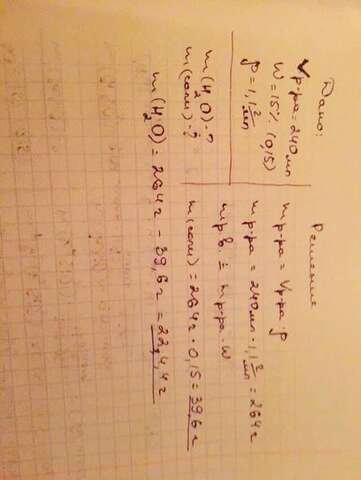 Дано:
Vр-ра = 240 мл
W = 15% (0,15)
ρ = 1,1 г/мл
m(H₂O) - ?
m(соли) - ?
Решение
mр-ра = Vр-ра · ρ
mр-ра = 240 мл · 1,1 г/мл = 264 г
mр.в = mр-ра · W
m(соли) = 264 г · 0,15 = 39,6 г
m(H₂O) = 264 г - 39,6 г = 224,4 г